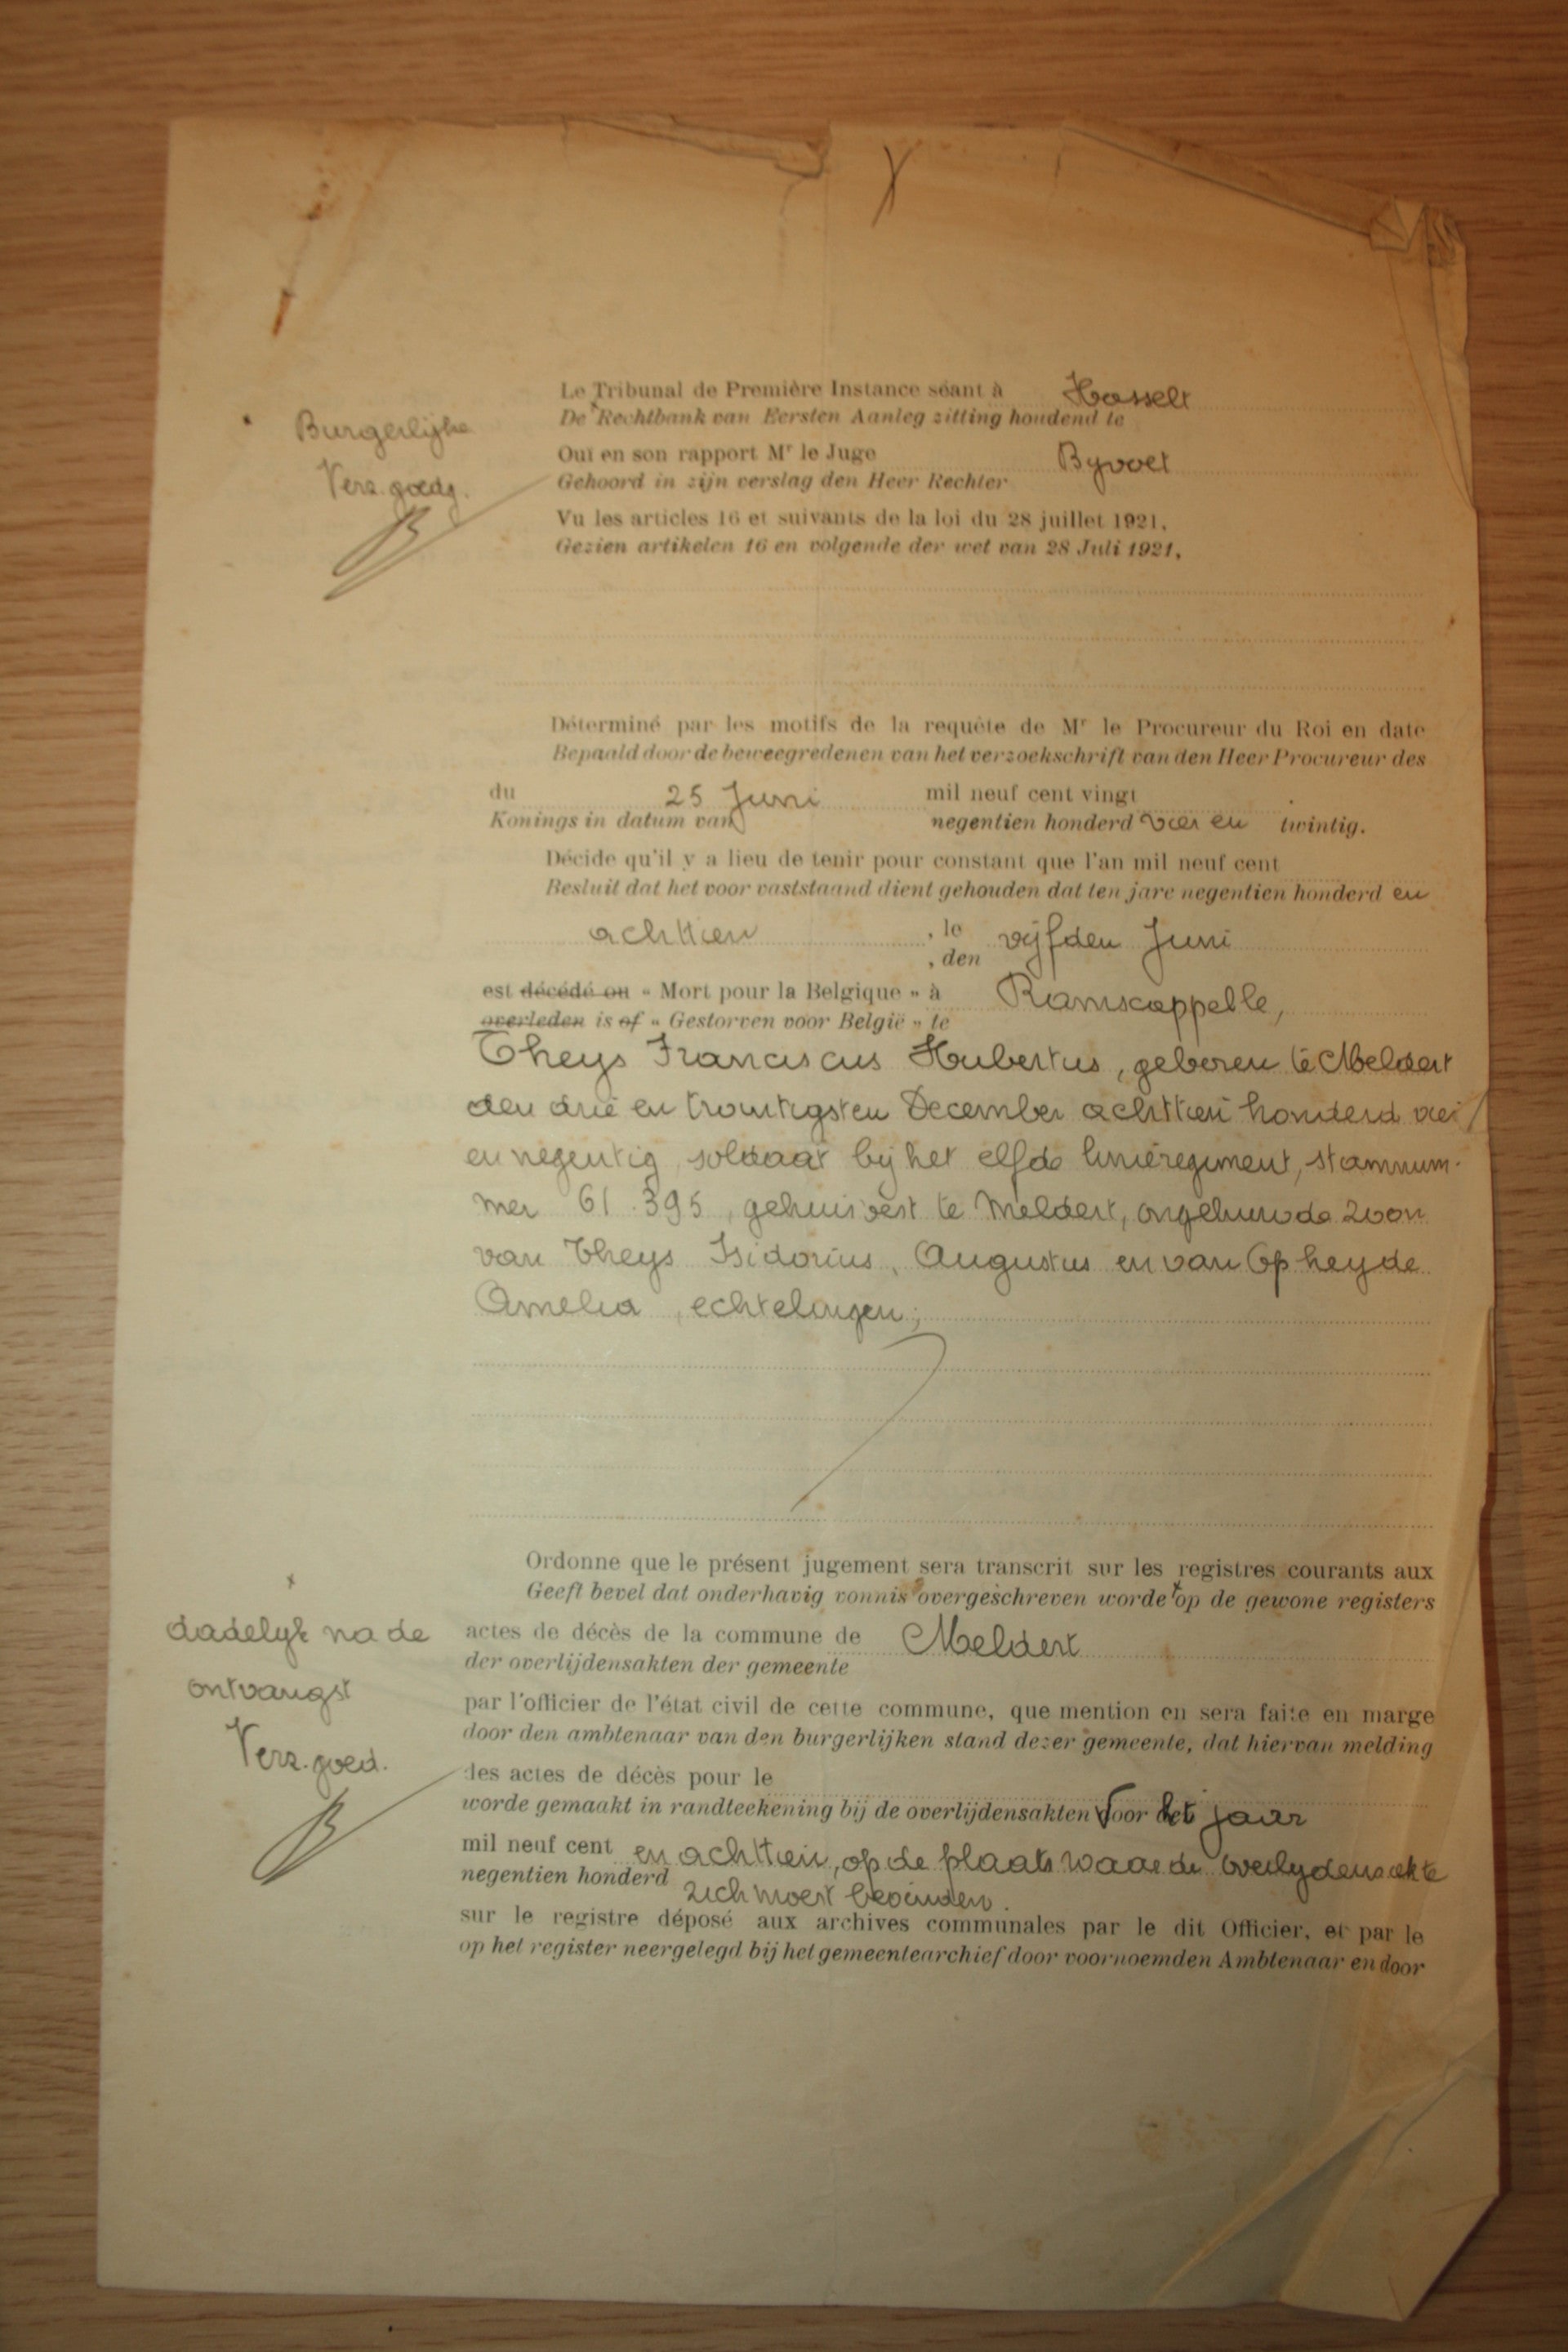 Le Tribunal de Première Instance séant à Hasselt
De Rechtbank van Eersten Aanleg zitting houdend te
Burgerlijke
Verz. goedg.
Ouï en son rapport Mr le Juge Byvoet
Gehoord in zijn verslag den Heer Rechter
Vu les articles 16 et suivants de la loi du 28 juillet 1921,
Gezien artikelen 16 en volgende der wet van 28 Juli 1921,
Déterminé par les motifs de la requête de Mr le Procureur du Roi en date
Bepaald door de beweegredenen van het verzoekschrift van den Heer Procureur des
du 25 Juni mil neuf cent vingt
Konings in datum van negentien honderd vier en twintig.
Décide qu'il y a lieu de tenir pour constant que l'an mil neuf cent
Besluit dat het voor vaststaand dient gehouden dat ten jare negentien honderd en
achttien , le vijfden Juni
, den
est décédé ou « Mort pour la Belgique » à Ramscappelle,
overleden is of « Gestorven voor België » te
Theys Franciscus Hubertus, geboren te Meldert
den drie en twintigsten December achttien honderd vier
en negentig, soldaat bij het elfde linieregiment, stamnum-
mer 61.395, gehuisvest te Meldert, ongehuwde zoon
van Theys Isidorius, Augustus en van Opheyde
Amelia, echtelingen;
Ordonne que le présent jugement sera transcrit sur les registres courants aux
Geeft bevel dat onderhavig vonnis overgeschreven worde op de gewone registers
dadelyk na de
ontvangst
Verz. goed.
actes de décès de la commune de Meldert
der overlijdensakten der gemeente
par l'officier de l'état civil de cette commune, que mention en sera faite en marge
door den ambtenaar van den burgerlijken stand dezer gemeente, dat hiervan melding
des actes de décès pour le
worde gemaakt in randteekening bij de overlijdensakten voor het jaar
mil neuf cent en achttien, op de plaats waar de overlydensakte
negentien honderd zich moest bevinden.
sur le registre déposé aux archives communales par le dit Officier, et par le
op het register neergelegd bij het gemeentearchief door voornoemden Ambtenaar en door